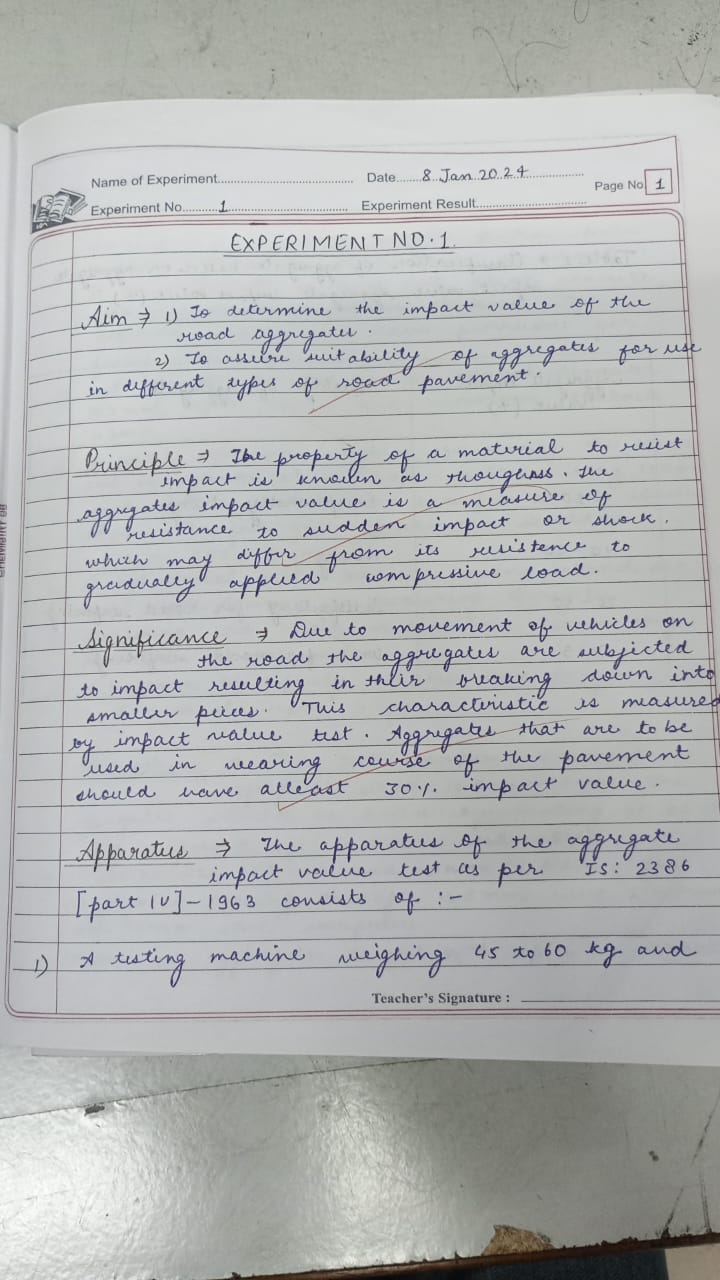 Name of Experiment............ Date.......8 Jan 2024............
Page No. 1
Experiment No.........1............ Experiment Result............
EXPERIMENT NO. 1.
Aim → 1) To determine the impact value of the
road aggregates.
2) To assure suitability of aggregates for use
in different types of road pavement.
Principle → The property of a material to resist
impact is known as thoughness. The
aggregates impact value is a measure of
resistance to sudden impact or shock,
which may differ from its resistence to
gradually applied compressive load.
Significance → Due to movement of vehicles on
the road the aggregates are subjected
to impact resulting in their breaking down into
smaller peices. This characteristic is measured
by impact value test. Aggregates that are to be
used in wearing course of the pavement
should have atleast 30% impact value.
Apparatus → The apparatus of the aggregate
impact value test as per IS: 2386
[part IV]-1963 consists of :-
1) A testing machine weighing 45 to 60 kg and
Teacher's Signature :